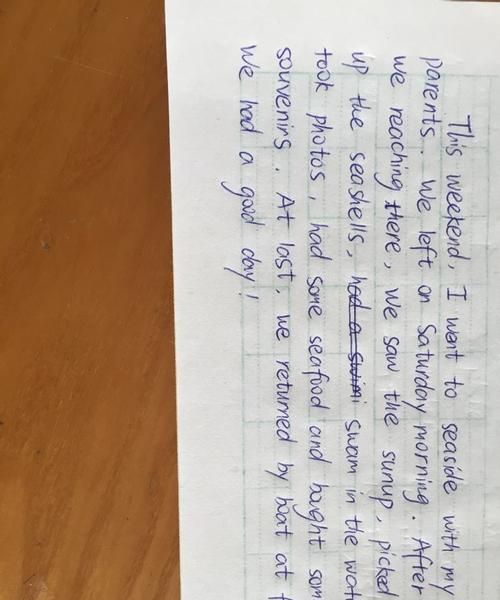 This weekend, I want to seaside with my
parents. We left on Saturday morning. After
we reaching there, we saw the sunup, picked
up the seashells, had a swim swam in the
took photos, had some seafood and bought
souvenirs. At last, we returned by boat at
We had a good day!